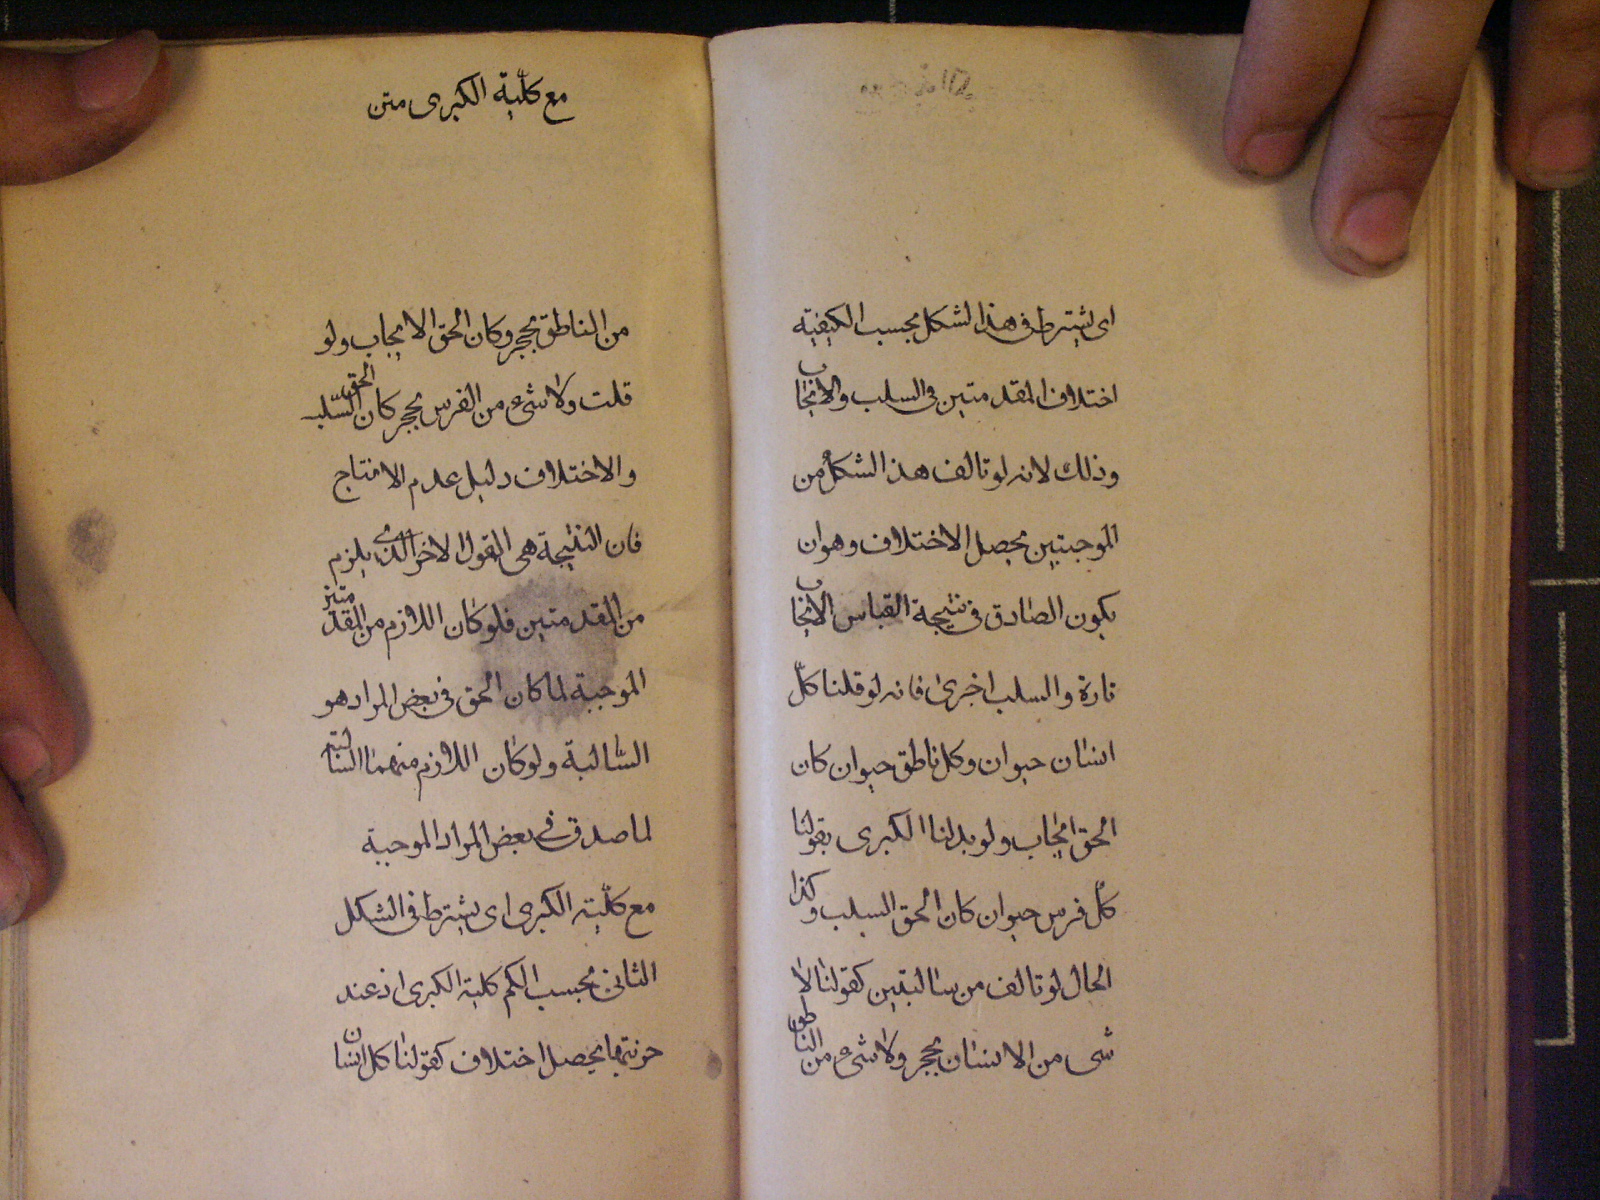 اى يشترط فى هذا الشكل بحسب الكيفية
اختلاف المقدمتين فى السلب والايجاب
وذلك لانه لو تالف هذا الشكل من
الموجبتين يحصل الاختلاف وهو ان
يكون الصادق فى نتيجة القياس الايجاب
تارة والسلب اخرى فانه لو قلنا كلّ
انسان حيوان وكل ناطق حيوان كان
الحق الايجاب ولو بدلنا الكبرى بقولنا
كلّ فرس حيوان كان الحق السلب وكذا
الحال لو تالف من سالبتين كقولنا لا
شى من الانسان بحجر ولا شىء من الناطق
مع كلّية الكبرى متن
من الناطق بحجر وكان الحق الايجاب ولو
قلت ولا شىء من الفرس بحجر كان الحق السّلب
والاختلاف دليل عدم الانتاج
فان النتيجة هى القول الاخر الذى يلزم
من المقدمتين فلو كان اللازم من المقدمتين
الموجبة لما كان الحق فى بعض المواد هو
السّالبة ولو كان اللازم منهما السالبة
لما صدق فى بعض المواد الموجبة
مع كلّية الكبرى اى يشترط فى الشكل
الثانى بحسب الكم كلية الكبرى اذ عند
جزئيتها يحصل اختلاف كقولنا كل انسان